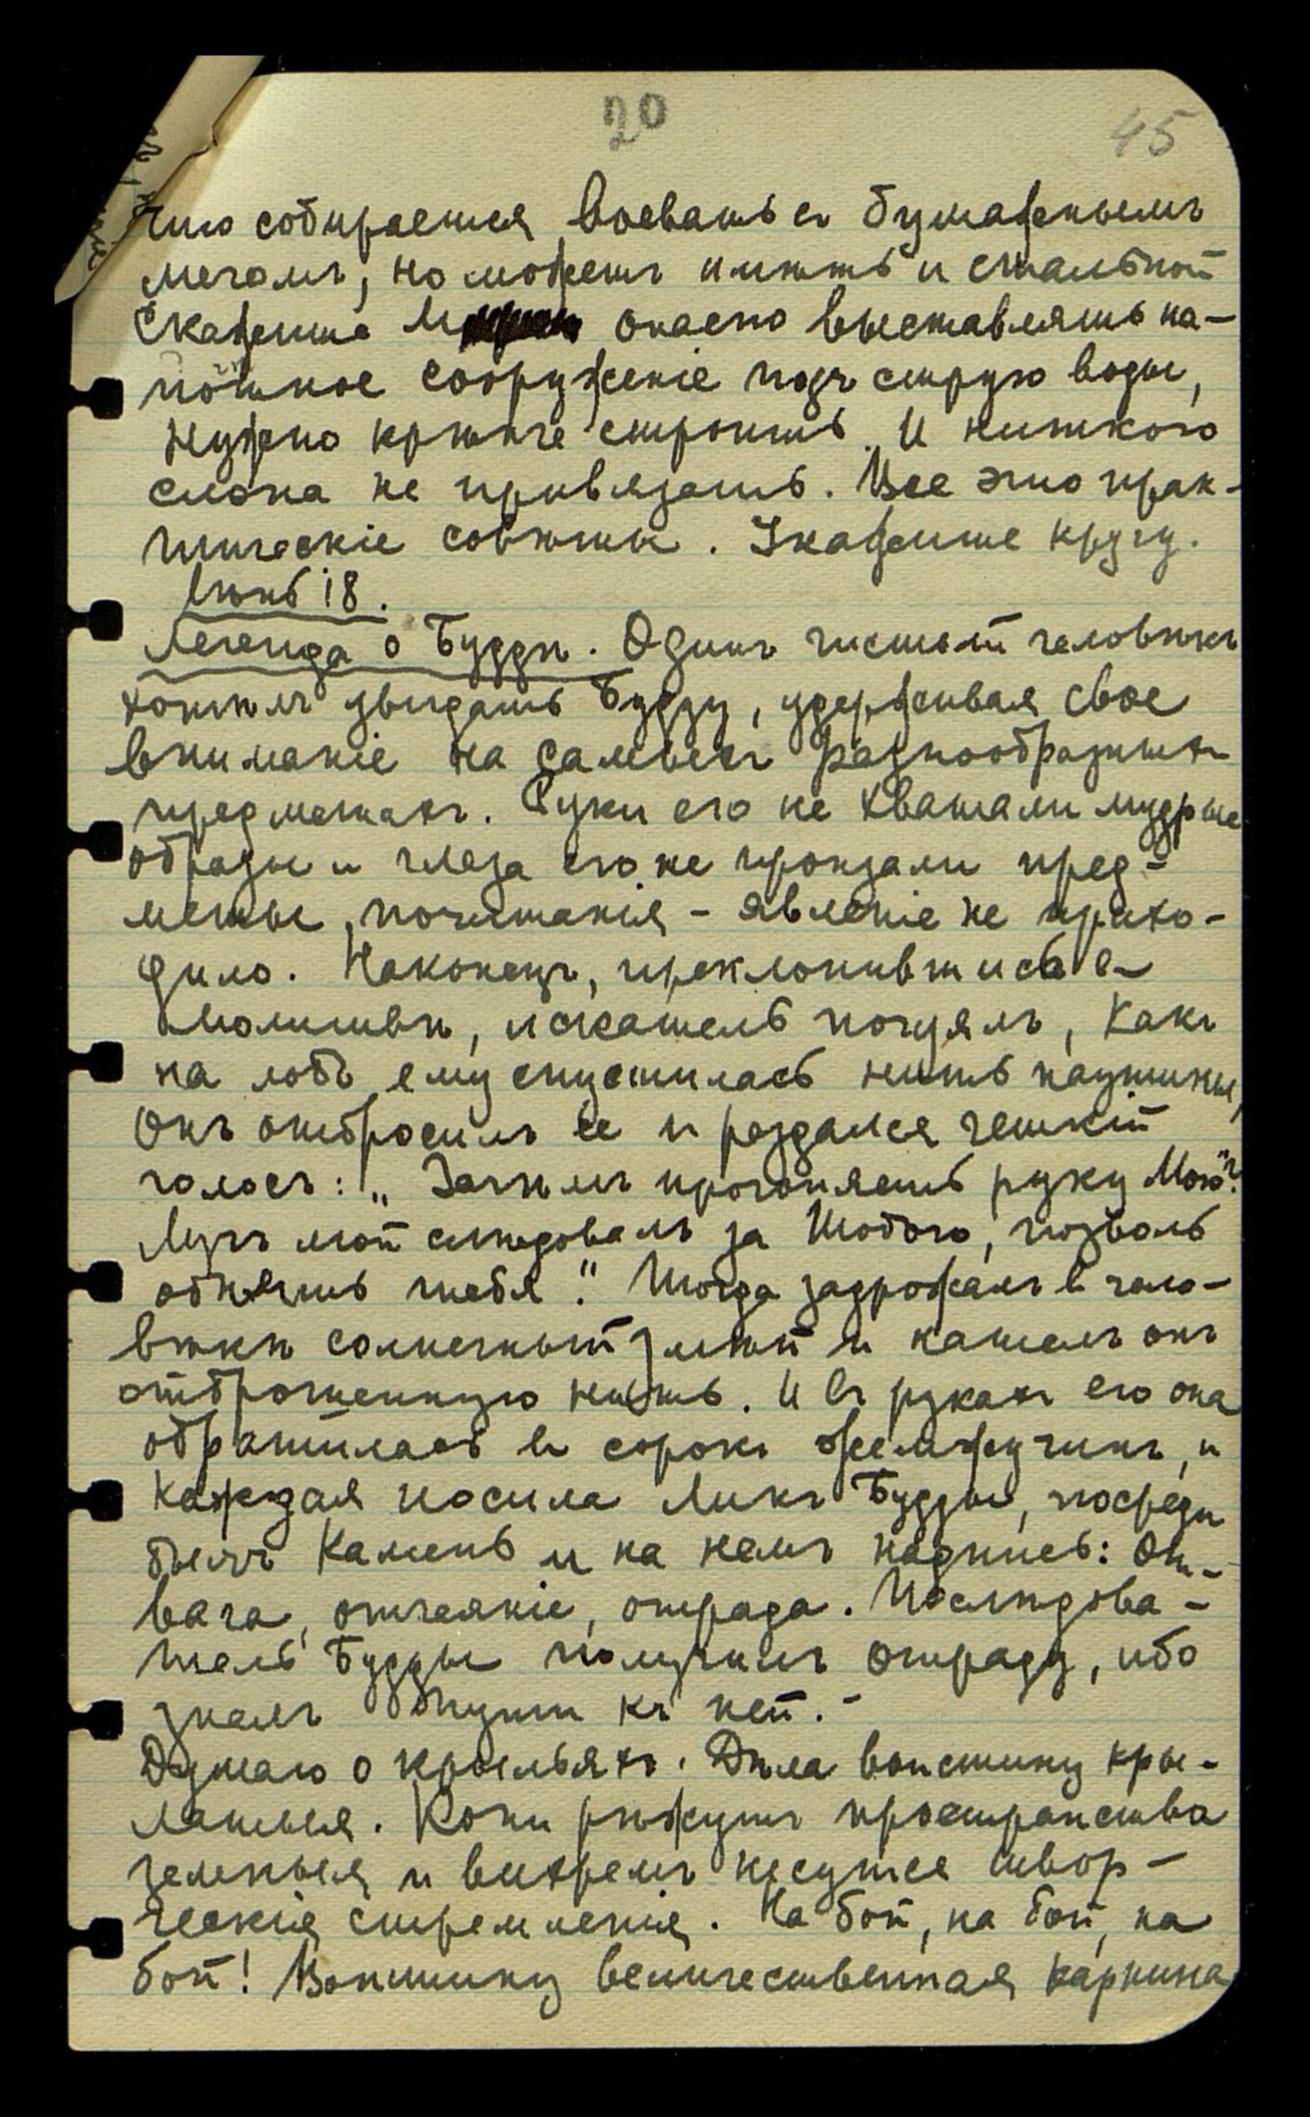 20
45
что собирается воевать съ бумажнымъ
мечомъ, но можетъ имѣть и стальной
Скажите М опасно выставлять на-
потное сооруженіе подъ струю воды,
нужно крѣпче строить. И ниткою
слона не привязать. Все это прак-
тическіе совѣты. Укажите кругу.
Июнь 18.
Легенда о Буддѣ. Одинъ чистый человѣкъ
хотѣлъ увидать Будду, удерживая свое
вниманіе на самыхъ разнообразныхъ
предметахъ. Руки его не хватали мудрые
образы и глаза его не пронзали пред-
меты почитанія - явленіе не прихо-
дило. Наконецъ, преклонившись въ
молитвѣ, искатель почуялъ, какъ
на лобъ ему спустилась нить паутины,
Онъ отбросилъ ее и раздался четкій
голосъ: „Зачѣмъ прогоняешь руку Мою?"
Лучъ мой слѣдовалъ за тобою, позволь
обнять тебя." Тогда задрожалъ въ чело-
вѣкѣ солнечный змѣй и нашелъ онъ
отброшенную нить. И въ рукахъ его она
обратилась въ сорокъ жемжучинъ, и
каждая носила Ликъ Будды, посреди
былъ Камень и на немъ надпись: От-
вага, отчаяніе, отрада. Послѣдова-
тель Будды получилъ отраду, ибо
зналъ пути къ ней.-
Думаю о крыльяхъ. Дѣла воистину кры-
латыя. Кони рѣжутъ пространства
земныя и вихремъ несутся твор-
ческія стремленія. На бой, на бой, на
бой! Воистину величественная картина